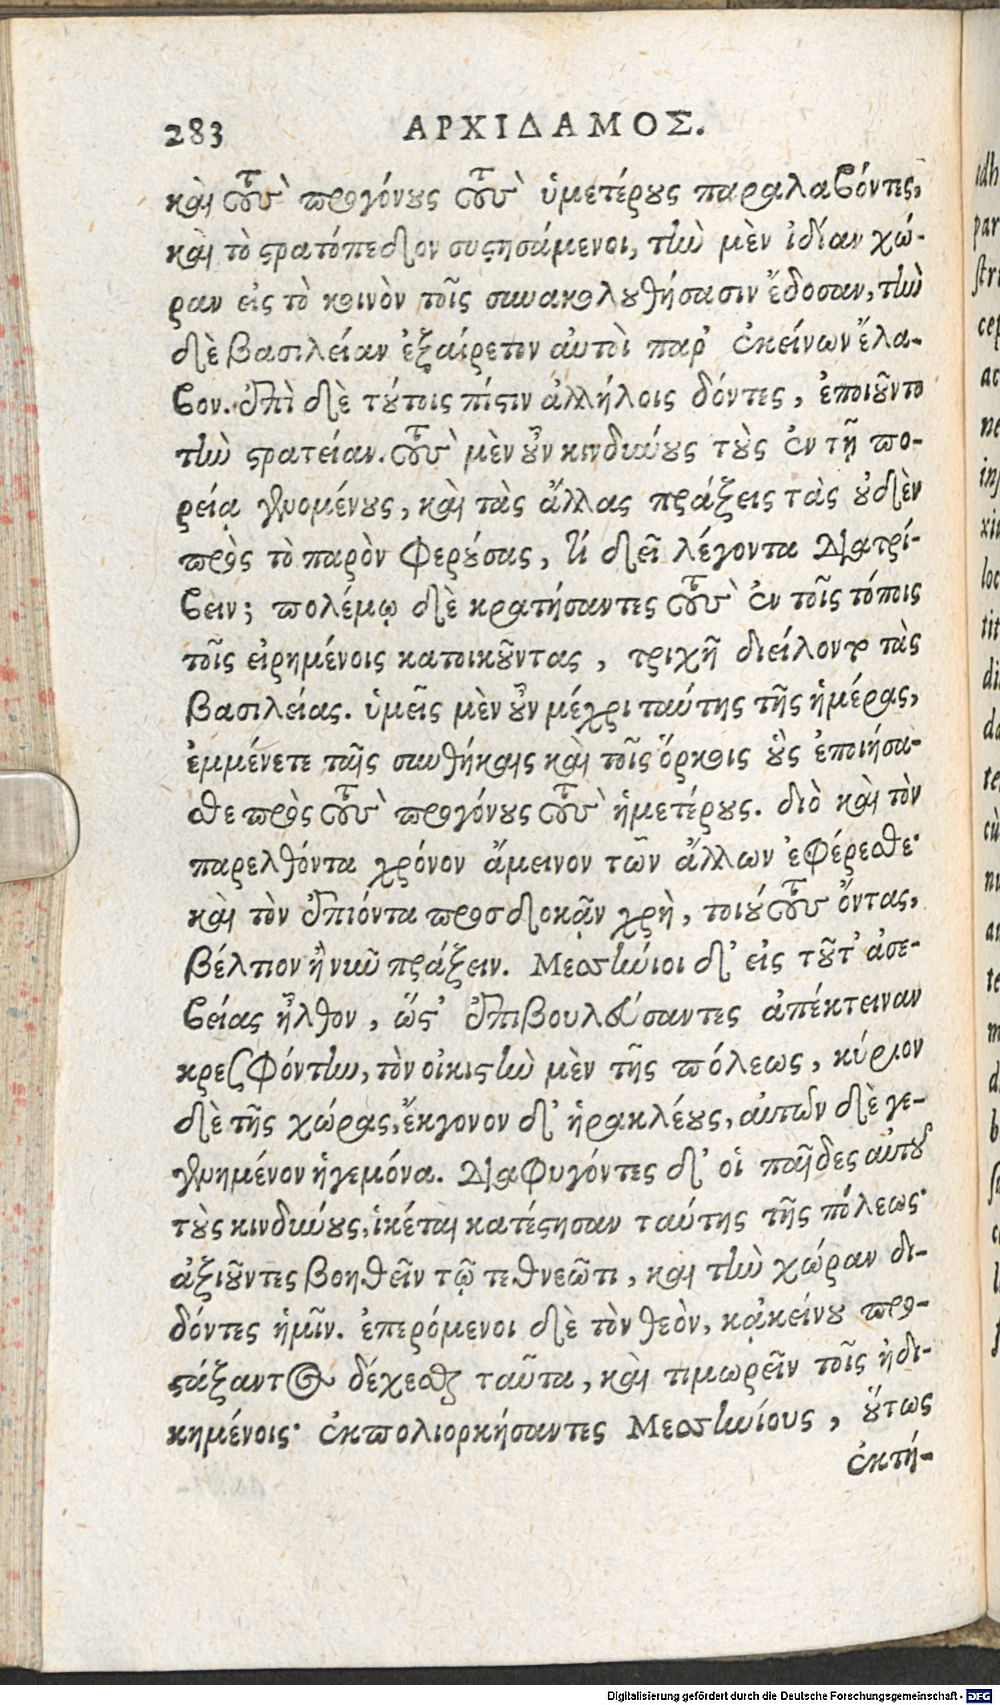 283 ΑΡΧΙΔΑΜΟΣ.
καὶ τοὺς προγόνους τοὺς ὑμετέρους παραλαβόντες,
καὶ τὸ στρατόπεδον συστησάμενοι, τὴν μὲν ἰδίαν χώ-
ραν εἰς τὸ κοινὸν τοῖς συνακολουθήσασιν ἔδοσαν, τὴν
δὲ βασιλείαν ἐξαίρετον αὐτοὶ παρ' ἐκείνων ἔλα-
βον. ἐπὶ δὲ τούτοις πίστιν ἀλλήλοις δόντες, ἐποιοῦντο
τὴν στρατείαν. τοὺς μὲν οὖν κινδύνους τοὺς ἐν τῇ πο-
ρείᾳ γενομένους, καὶ τὰς ἄλλας πράξεις τὰς οὐδὲν
πρὸς τὸ παρὸν φερούσας, τί δεῖ λέγοντα διατρί-
βειν; πολέμῳ δὲ κρατήσαντες τοὺς ἐν τοῖς τόποις
τοῖς εἰρημένοις κατοικοῦντας, τριχῆ διείλοντο τὰς
βασιλείας. ὑμεῖς μὲν οὖν μέχρι ταύτης τῆς ἡμέρας,
ἐμμένετε ταῖς συνθήκαις καὶ τοῖς ὅρκοις οὓς ἐποιήσα-
σθε πρὸς τοὺς προγόνους τοὺς ἡμετέρους. διὸ καὶ τὸν
παρελθόντα χρόνον ἄμεινον τῶν ἄλλων ἐφέρεσθε·
καὶ τὸν ἐπιόντα προσδοκᾷν χρὴ, τοιούτους ὄντας,
βέλτιον ἢ νῦν πράξειν. Μεσσήνιοι δ' εἰς τοῦτ' ἀσε-
βείας ἦλθον, ὥστ' ἐπιβουλεύσαντες ἀπέκτειναν
κρεσφόντην, τὸν οἰκιστὴν μὲν τῆς πόλεως, κύριον
δὲ τῆς χώρας, ἔκγονον δ' ἡρακλέους, αὐτῶν δὲ γε-
γενημένον ἡγεμόνα. Διαφυγόντες δ' οἱ παῖδες αὐτοῦ
τοὺς κινδύνους, ἱκέται κατέστησαν ταύτης τῆς πόλεως·
ἀξιοῦντες βοηθεῖν τῷ τεθνεῶτι, καὶ τὴν χώραν δι-
δόντες ἡμῖν. ἐπερόμενοι δὲ τὸν θεὸν, κᾀκείνου προ-
στάξαντος δέχεσθαι ταῦτα, καὶ τιμωρεῖν τοῖς ἠδι-
κημένοις· ἐκπολιορκήσαντες Μεσσηνίους, οὕτως
ἐκτή-
Digitalisierung gefördert durch die Deutsche Forschungsgemeinschaft - DFG